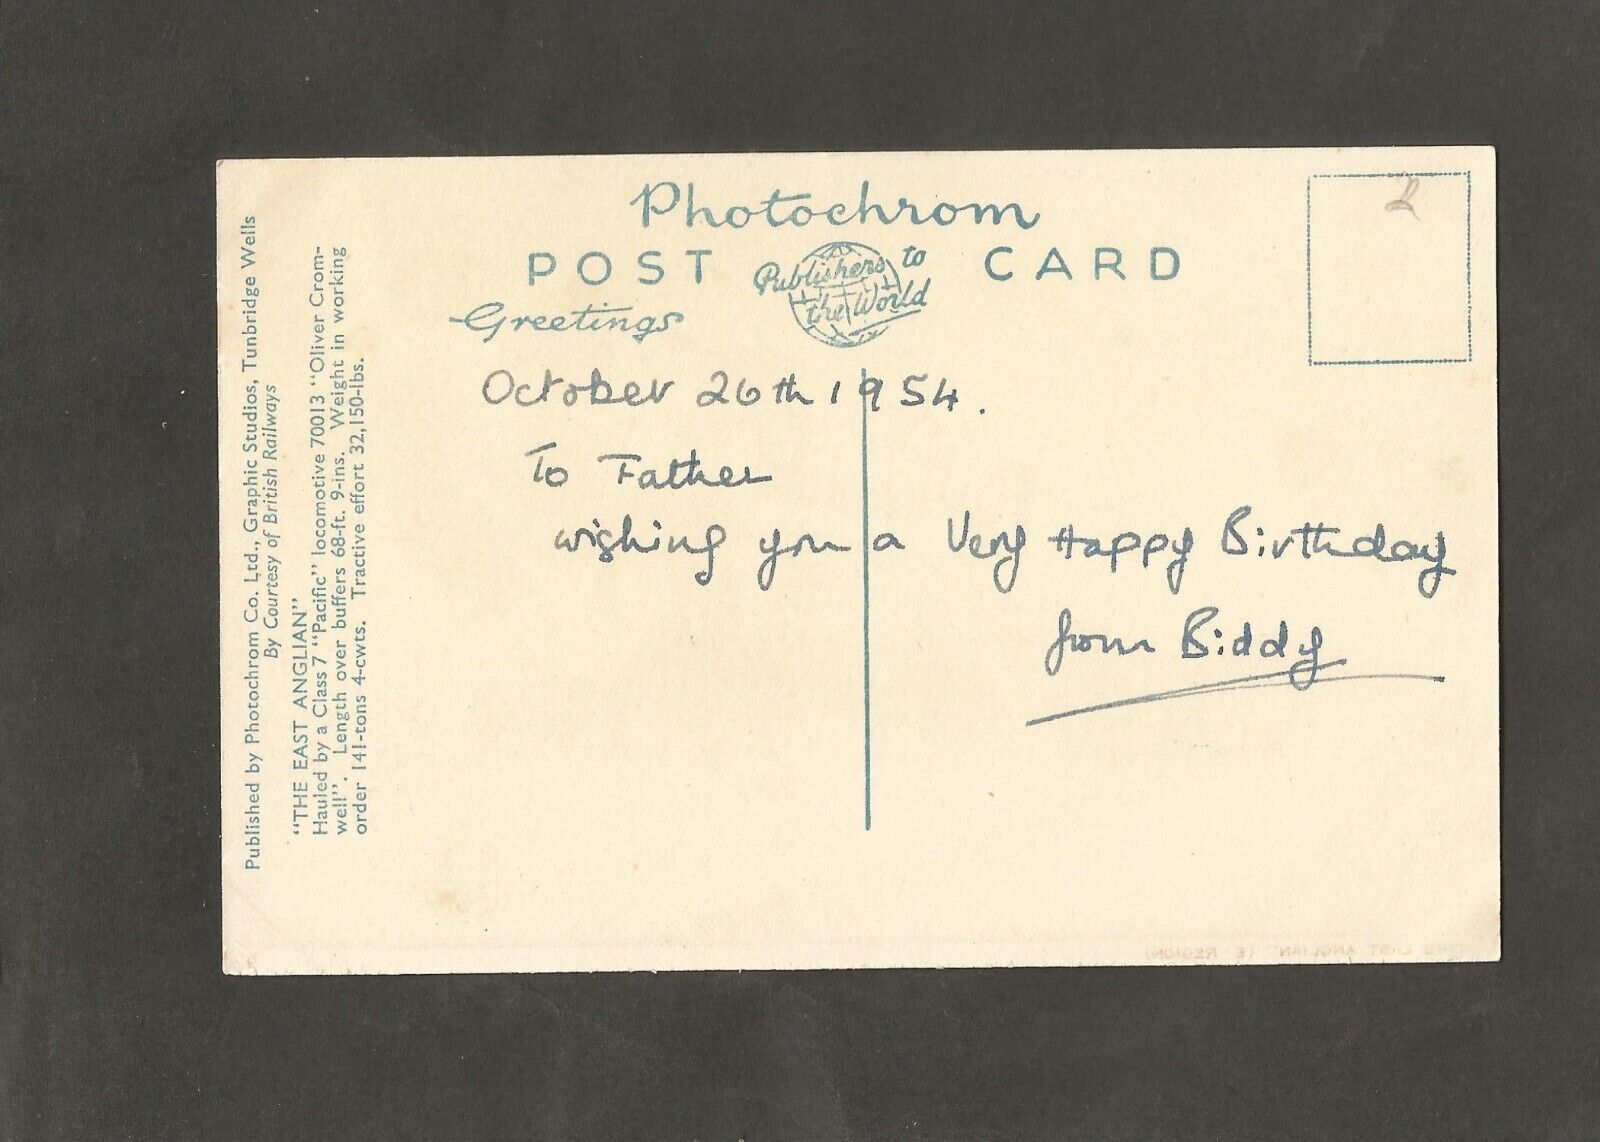 Photochrom
POST CARD
Publishers to
the World
Greetings
October 26th 1954.
To Father
wishing you a Very Happy Birthday
from Biddy
Published by Photochrom Co. Ltd., Graphic Studios, Tunbridge Wells
By Courtesy of British Railways
"THE EAST ANGLIAN"
Hauled by a Class 7 "Pacific" locomotive 70013 "Oliver Crom-
well". Length over buffers 68-ft. 9-ins. Weight in working
order 141-tons 4-cwts. Tractive effort 32,150-lbs.